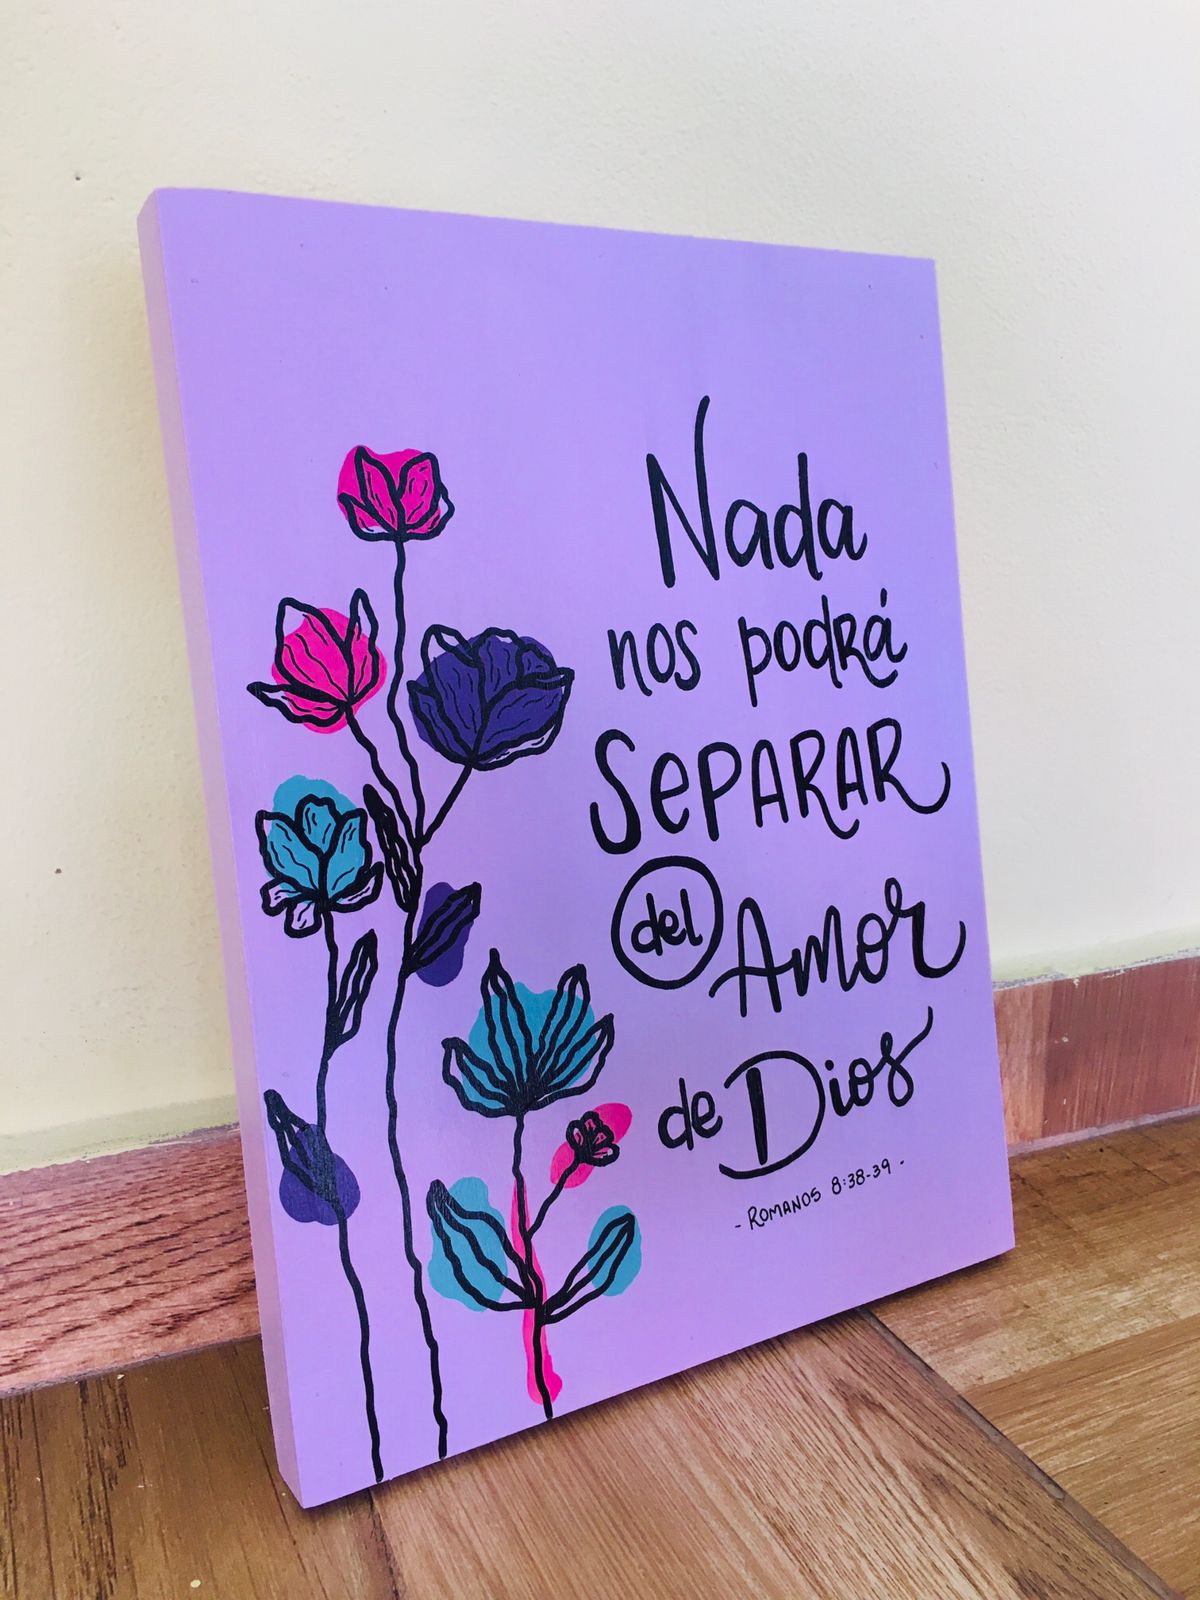 Nada
nos podrá
SePARAR
del Amor
de Dios
- ROMANOS 8:38-39 -